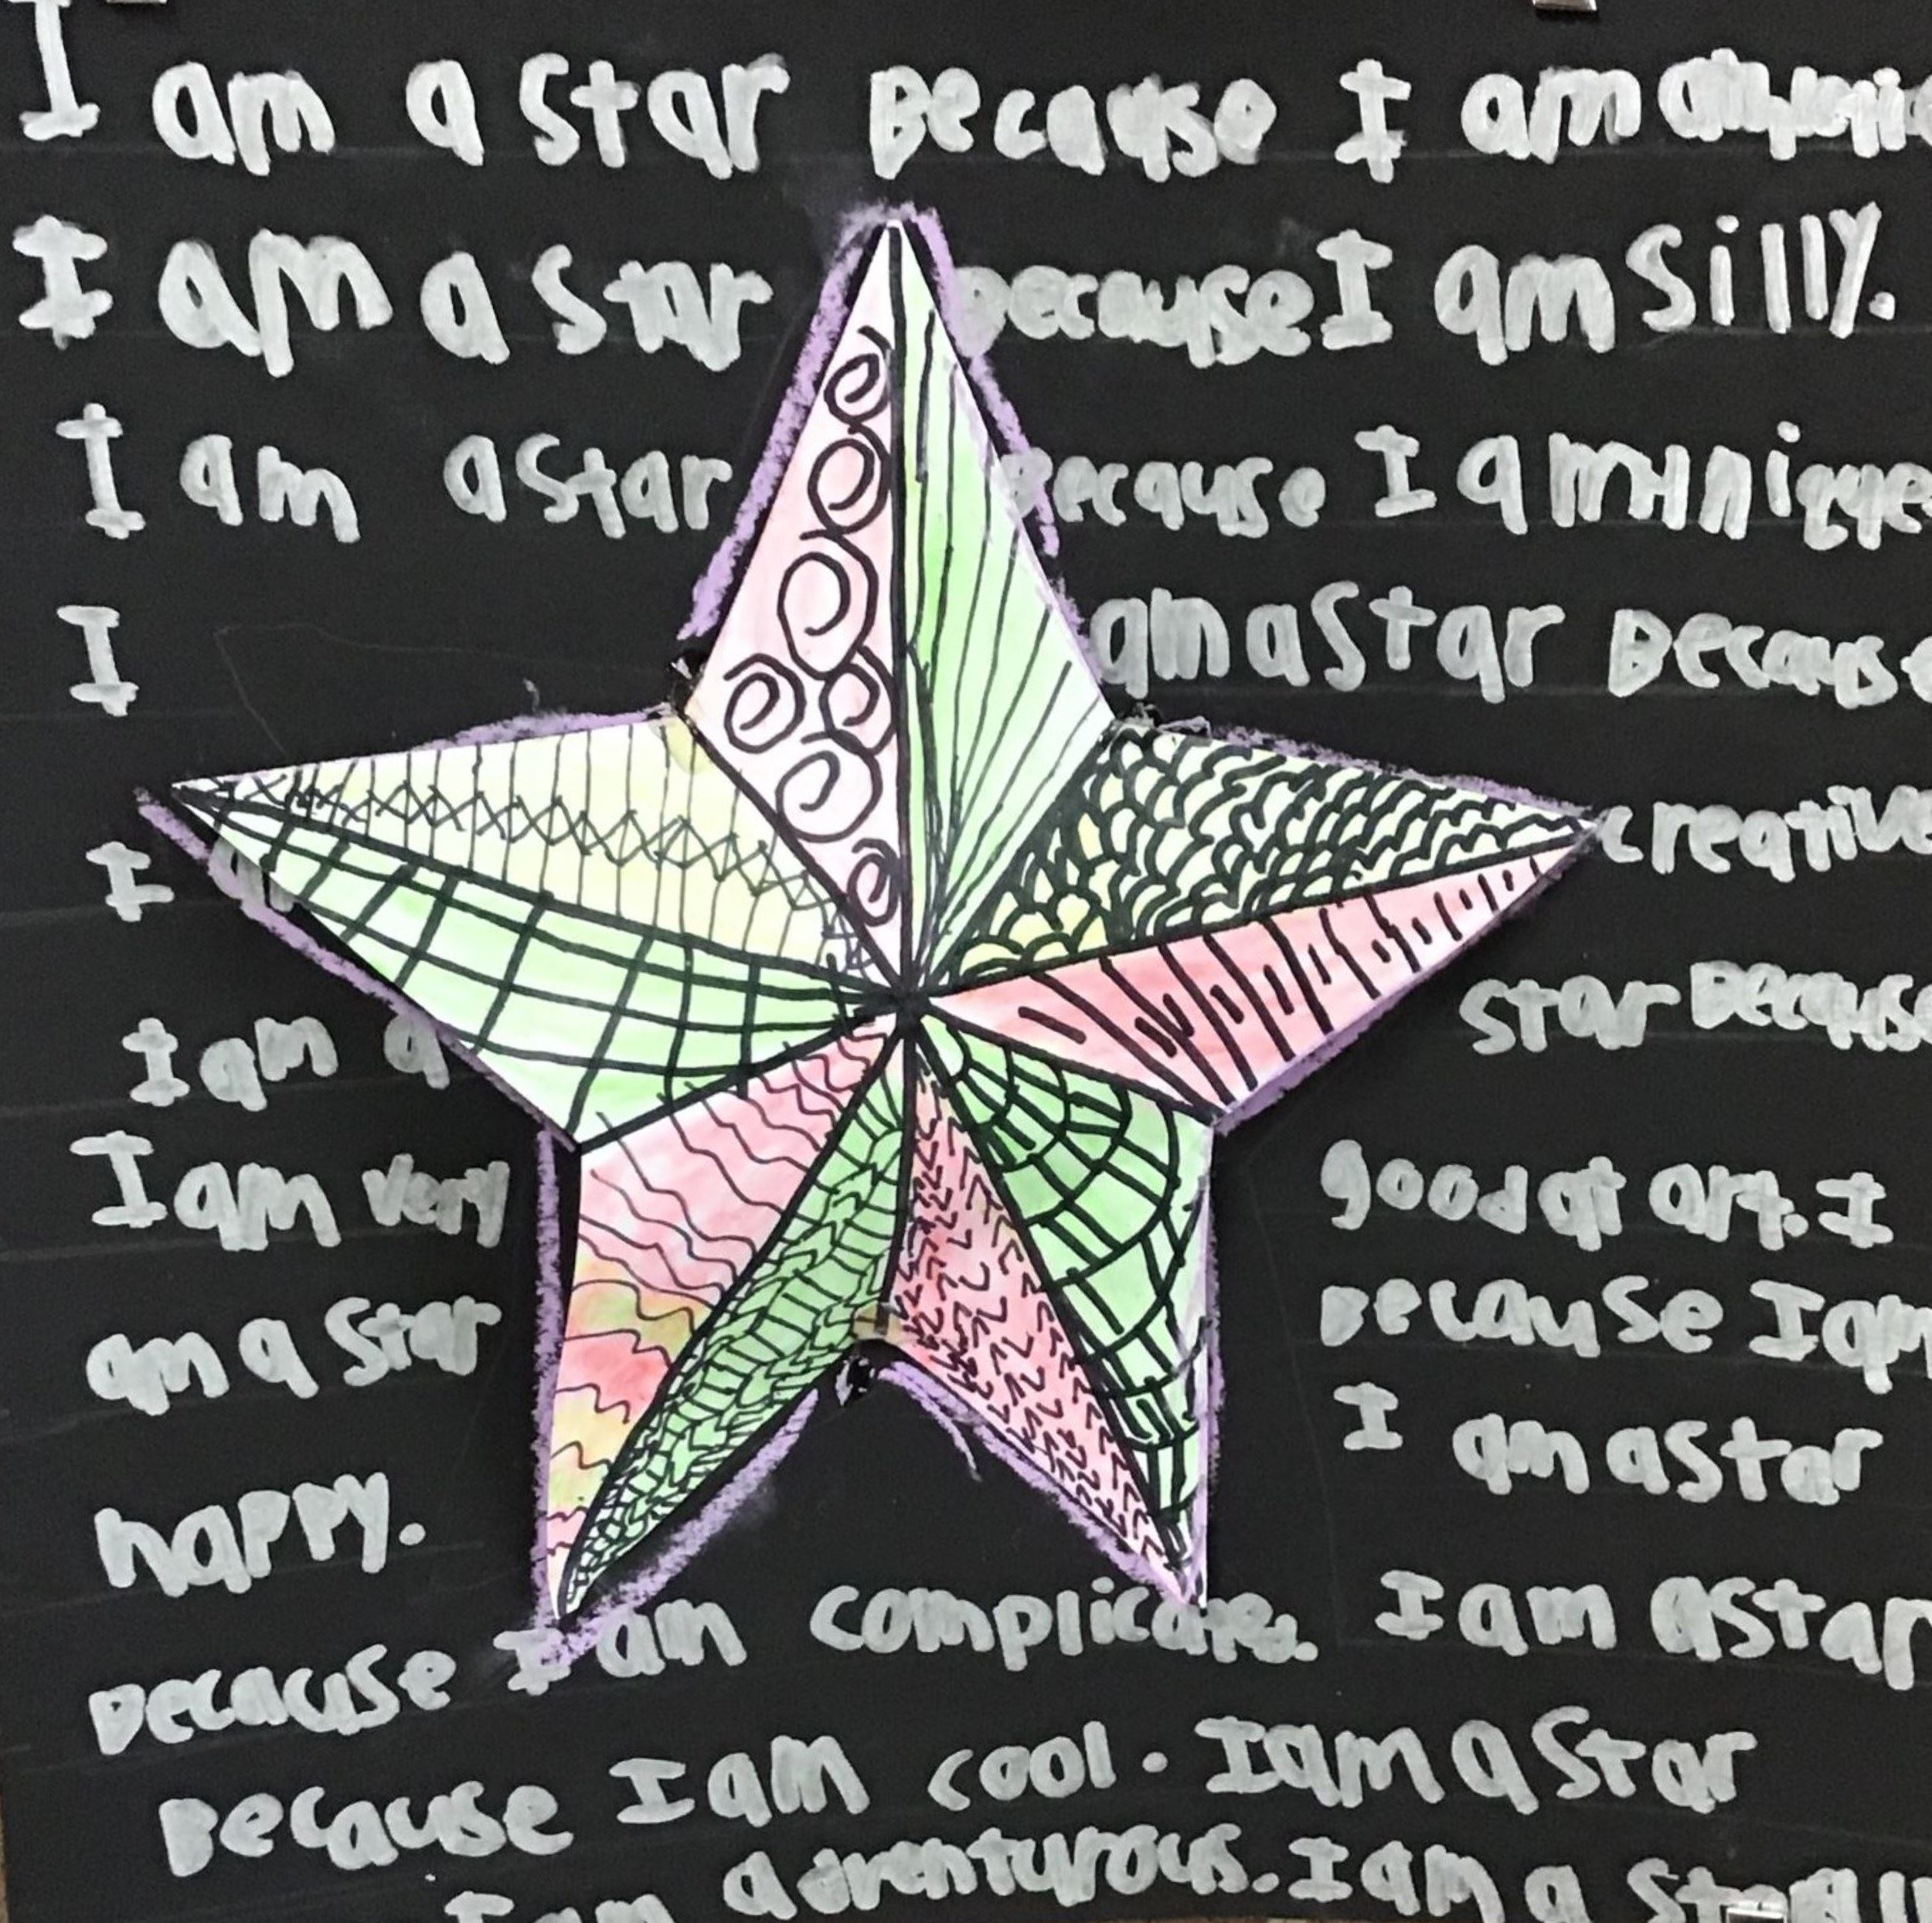 I am a star Because I am
I am a star because I am silly.
I am a star because I am unique
I am a star Because
I creative
I am a star Because
I am very good at art. I
am a star Because I am
happy. I am a star
Because I am complicated. I am a star
Because I am cool. I am a star
I am adventurous. I am a star